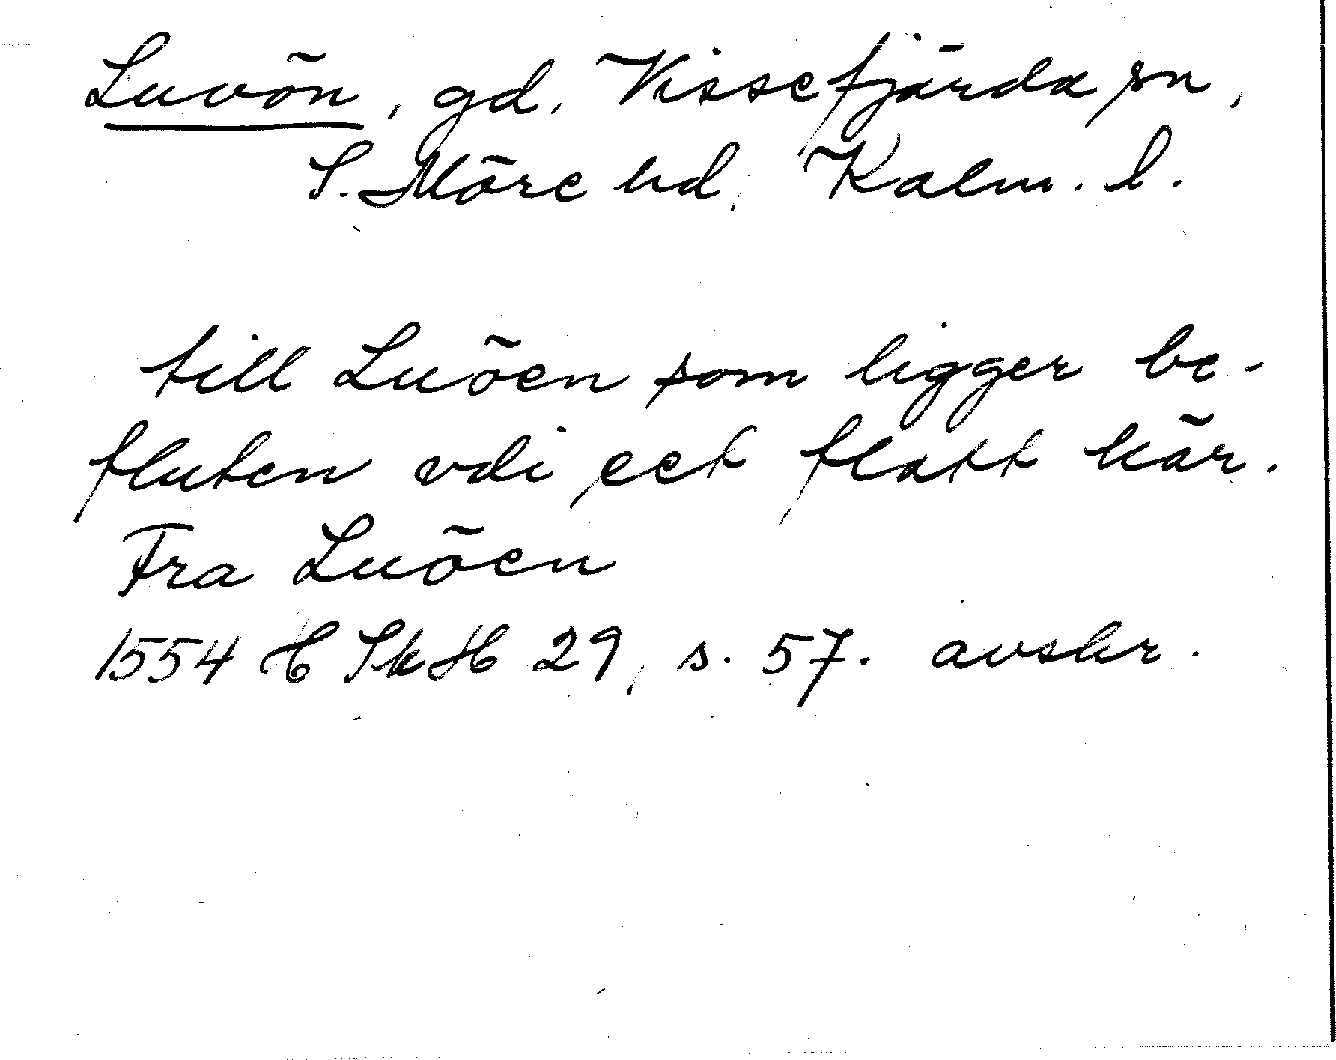 Luvön, gd, Vissefjärda sn,
S. Möre hd, Kalm. l.
till Luöen som ligger be-
fluten vdi eet flatt kär.
Fra Luöen
1554 SkH 29, s. 57. avskr.